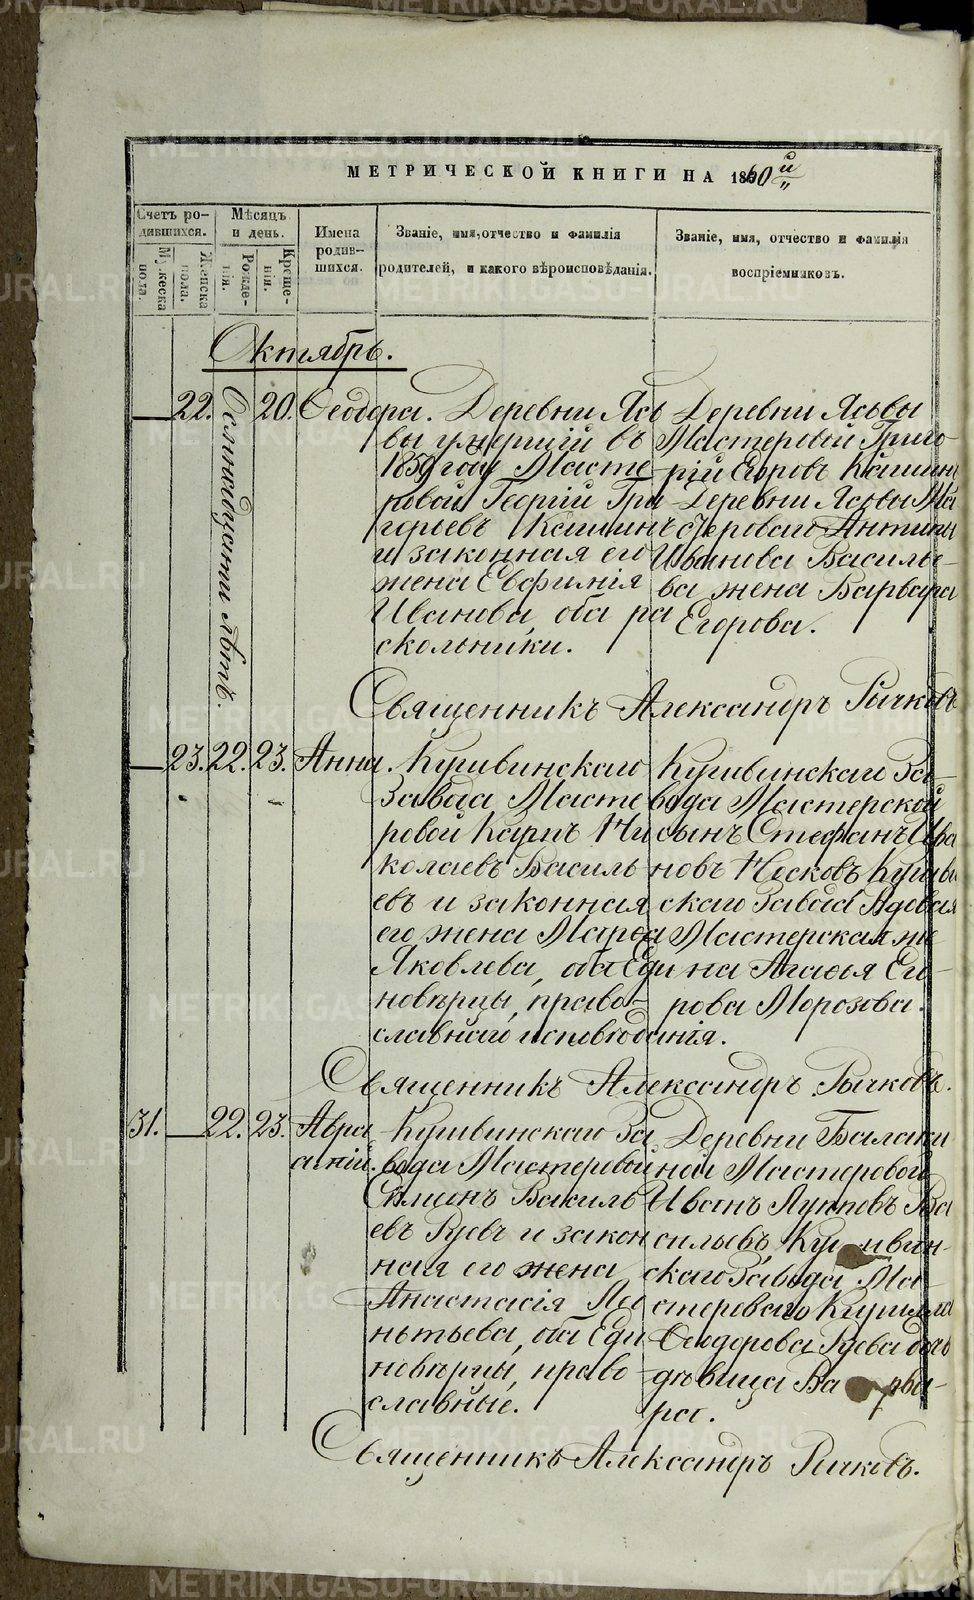 МЕТРИЧЕСКОЙ КНИГИ НА 1860й
Счетъ родившихся.
Мужеска пола.
Женска пола.
Мѣсяцъ и день.
Рожденія.
Крещенія.
Имена родившихся.
Званіе, имя, отчество и фамилія
родителей, и какого вѣроисповѣданія.
Званіе, имя, отчество и фамилія
воспріемниковъ.
Октябрь.
22.
лѣтъ.
20.
Ѳеодора.
Деревни Ясь
вы умершій въ
1859 году Масте
ровой Георгій Гри
горьевъ Кашинъ
и законная его
жена Евфимія
Иванова, оба ра
скольники.
Деревни Ясьвы
Мастеровой Григо
рій Егоровъ Кашин
Деревни Ясьвы Ма
стероваго Антипы
Иванова Василье-
ва жена Варвара
Егорова.
Священникъ Александръ Рычковъ
23. 22. 23. Анна.
Кушвинскаго
Завода Масте
ровой Карпъ Ни
колаевъ Василь
евъ и законная
его жена Марѳа
Яковлева, оба Еди
новѣрцы, право-
славнаго исповѣданія.
Кушвинскаго За-
вода Мастерской
сынъ Стефанъ Ива
новъ Носковъ Кушви
скаго Завода Вдовая
Мастерская же
на Агаѳья Его-
рова Морозова.
Священникъ Александръ Рычковъ.
31. 22. 23. Авра
амій.
Кушвинскаго За
вода Мастеровой
Симонъ Василь
евъ Гуевъ и закон
ная его жена
Анастасія Лео
нтьева, оба Еди
новѣрцы, право-
славные.
Деревни Балаки
ной Мастеровой
Иванъ Лупповъ Ва
сильевъ, Кушвин-
скаго Завода Ма-
стероваго Кирилла
Ѳеодорова Гуева дочь
дѣвица Варва-
ра.
Священникъ Александръ Рычковъ.